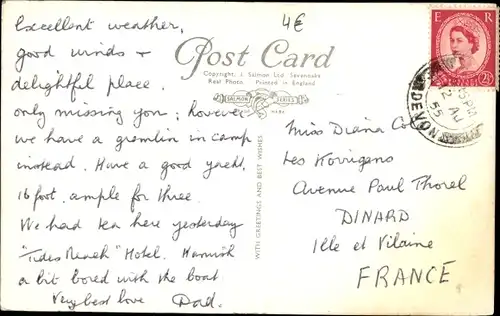 Excellent weather,
good winds +
delightful place.
only missing you; however
we have a gremlin in camp
instead. Have a good yacht,
16 foot, ample for three.
We had tea here yesterday
"Tides Reach" Hotel.
a bit bored with the boat
Very best love Dad.
4€
Post Card
Copyright, J. Salmon Ltd. Sevenoaks
Real Photo. Printed in England
SALMON SERIES
WITH GREETINGS AND BEST WISHES
E R
2½
PM
AU
55
DEVON
Miss Diana
Les Korrigans
Avenue Paul Thorel
DINARD
Ille et Vilaine
FRANCE